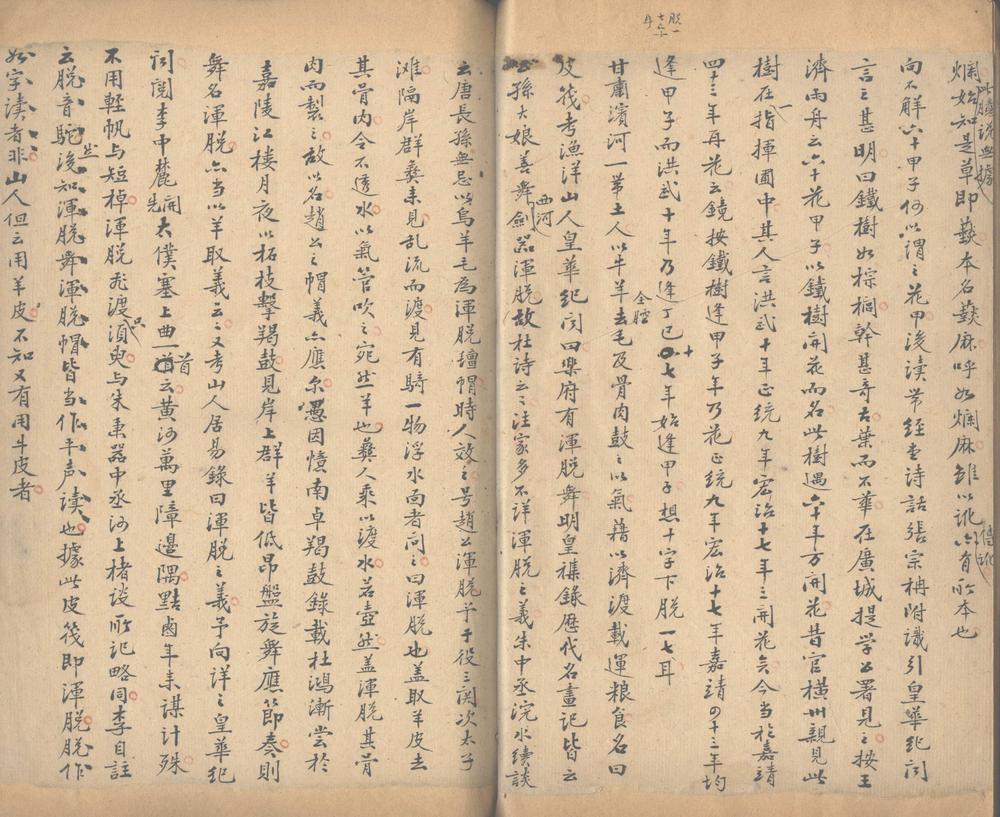 脫一
七字
斗
此臆說無據
爛始知是草即藙本名藙麻呼如爛麻雖以訛亦有所本也
借訛
向不解六十甲子何以謂之花甲後讀帶經堂詩話張宗柟附識引皇華紀聞
言之甚明曰鐵樹如棕櫚幹甚奇古葉而不華在廣城提學公署見之按王
濟雨舟云六十花甲子以鐵樹開花而名此樹遇六十年方開花昔官橫州親見此
樹在一指揮圃中其人言洪武十年正統九年宏治十七年三開花矣今当於嘉靖
四十三年再花云鏡按鐵樹逢甲子年乃花正統九年宏治十七年嘉靖四十三年均
逢甲子而洪武十年乃逢丁巳十七年始逢甲子想十字下脫一七耳
甘肅濱河一帶土人以牛羊去毛及骨肉全腔鼓之以氣藉以濟渡載運粮食名曰
皮筏考漁洋山人皇華紀闻曰樂府有渾脫舞明皇襍錄歷代名畫記皆云
公孫大娘善舞西河劍器渾脫故杜诗云云注家多不詳渾脫之義朱中丞浣水續談
云唐長孫無忌以烏羊毛為渾脫氊帽時人效之号趙公渾脫予于役三関次太子
滩隔岸群彝来見乱流而渡見有騎一物浮水向者问之曰渾脫也盖取羊皮去
其骨肉令不透水以氣管吹之宛然羊也彝人乘以渡水若壺然盖渾脫其骨
肉而製之故以名趙公之帽義亦應尔愚因憶南卓羯鼓錄載杜鴻漸尝於
嘉陵江樓月夜以柘枝擊羯鼓見岸上群羊皆低昂盤旋舞應節奏則
舞名渾脫亦当以羊取義云云又考山人居易錄曰渾脫之義予向詳之皇華纪
闻閲李中麓開先太僕塞上曲一百首云黃河萬里障邊隅黠鹵年来謀计殊
不用輕帆与短棹渾脫飛渡只須臾与朱秉器中丞河上楮谈所记略同李自註
云脫音駝後知渾脫舞渾脫帽皆当作平声读也據此皮筏即渾脫脫作
如字读者非山人但云用羊皮不知又有用牛皮者